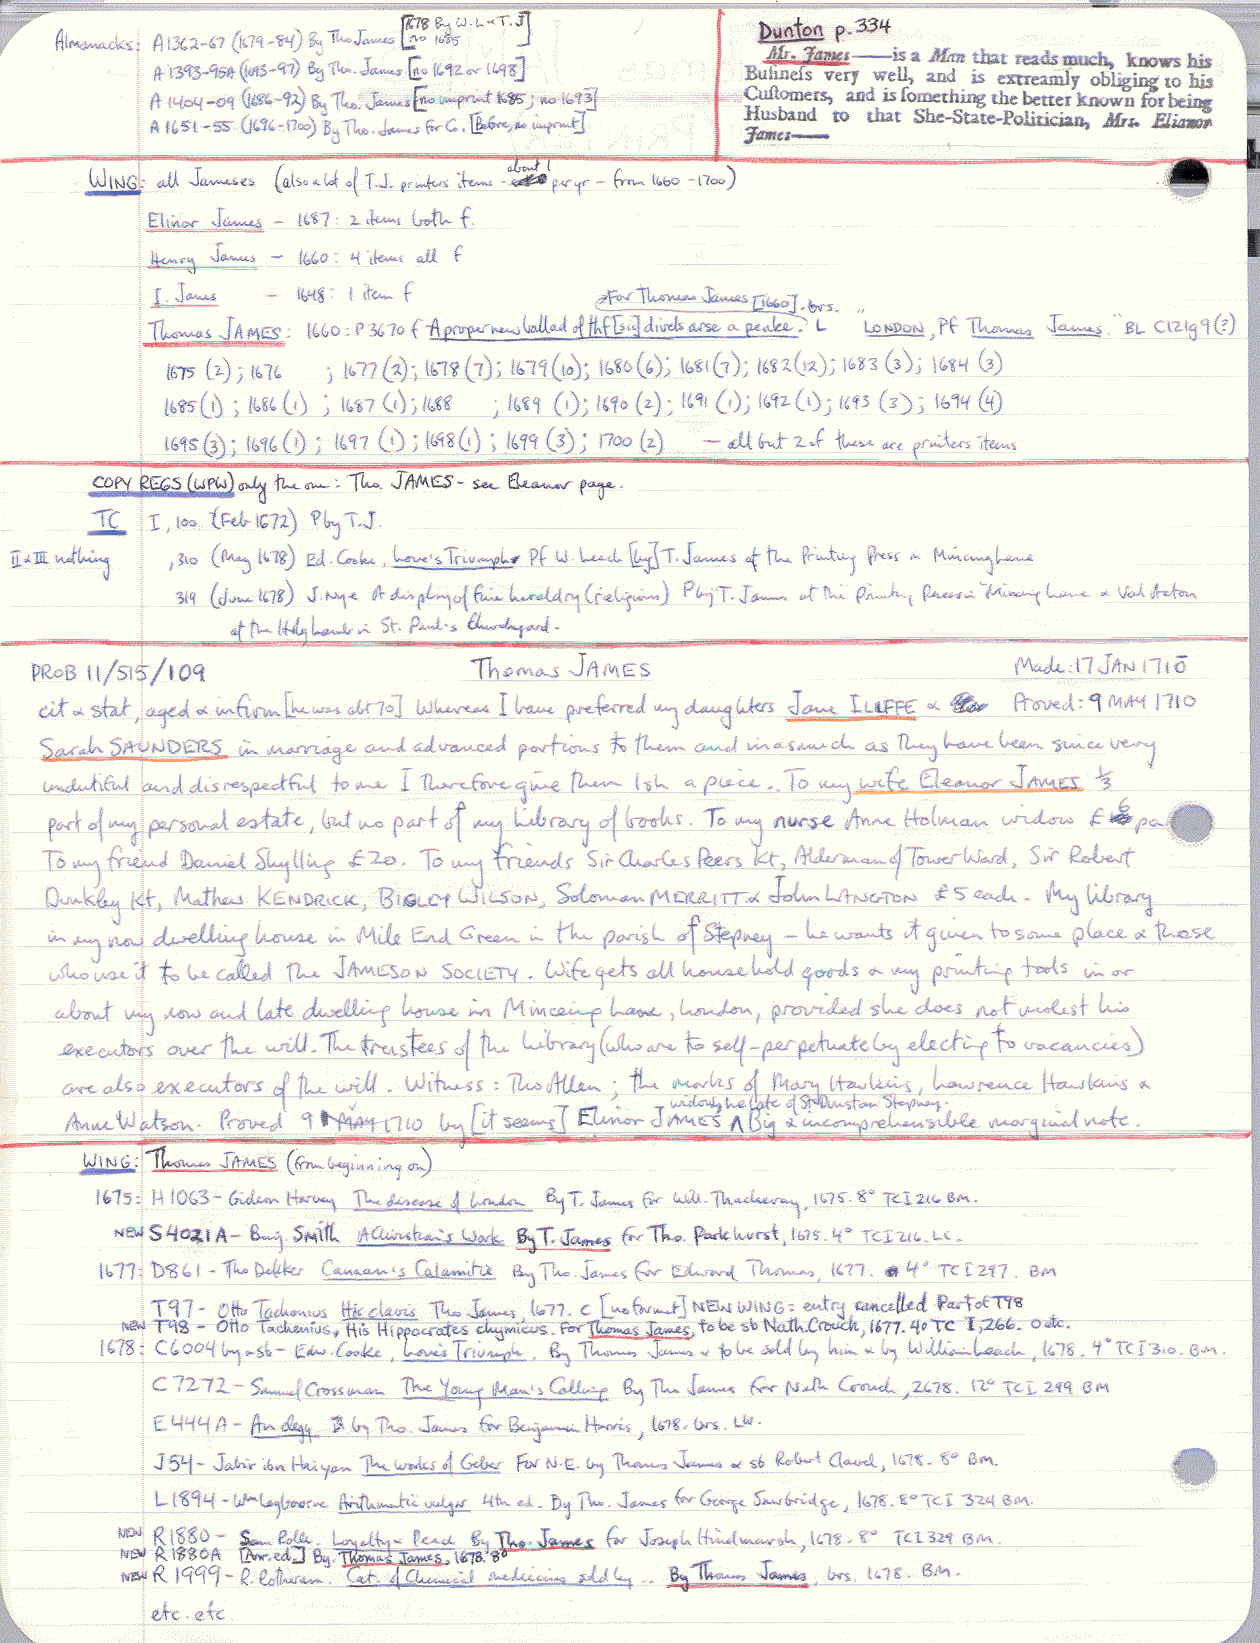 Almanacks: A1362-67 (1679-84) By Tho. James [1678 By W.L & T.J no 1685]
A1393-95A (1695-97) By Tho. James [no 1692 or 1698]
A1404-09 (1686-92) By Tho. James [no imprint 1685; no 1693]
A1651-55 (1696-1700) By Tho. James for G. [Before, no imprint]
Dunton p. 334
Mr. James——is a Man that reads much, knows his
Buſineſs very well, and is extreamly obliging to his
Cuſtomers, and is ſomething the better known for being
Husband to that She-State-Politician, Mrs. Elianor
James——
WING: all Jameses (also a lot of T.J. printers items - about 1 per yr - from 1660-1700)
Elinor James - 1687: 2 items both f.
Henry James - 1660: 4 items all f
I. James - 1648: 1 item f
For Thomas James [1660]. brs.
Thomas JAMES: 1660: P3670 f A proper new ballad of thf [sic] divels arse a peake. L LONDON, Pf Thomas James." BL C121g9(?)
1675 (2); 1676 ; 1677 (2); 1678 (7); 1679 (10); 1680 (6); 1681 (7); 1682 (12); 1683 (3); 1684 (3)
1685 (1); 1686 (1) ; 1687 (1); 1688 ; 1689 (1); 1690 (2); 1691 (1); 1692 (1); 1693 (3); 1694 (4)
1695 (3); 1696 (1); 1697 (1); 1698 (1); 1699 (3); 1700 (2) - all but 2 of these are printers items
COPY REGS (WPW) only the one: Tho. JAMES - see Eleanor page.
TC I, 100 (Feb 1672) P by T.J.
II & III nothing ,310 (May 1678) Ed. Cooke, Love's Triumph Pf W. Leach [by] T. James of the Printing Press in Mincing Lane
319 (June 1678) J. Nye A display of fine heraldry (religious) P by T. James at the Printing Press in Mincing Lane & Val Acton
at the Holy Lamb in St. Paul's Churchyard.
PROB 11/515/109 Thomas JAMES Made: 17 JAN 1710
cit & stat, aged & infirm [he was abt 70] Whereas I have preferred my daughters Jane ILIFFE & Proved: 9 MAY 1710
Sarah SAUNDERS in marriage and advanced portions to them and inasmuch as they have been since very
undutiful and disrespectful to me I therefore give them 1sh a piece.. To my wife Eleanor JAMES 1/3
part of my personal estate, but no part of my library of books. To my nurse Anne Holman widow £6 pa
To my friend Daniel Skylling £20. To my friends Sir Charles Peers Kt, Alderman of Tower Ward, Sir Robert
Dunkley Kt, Mathew KENDRICK, BIGLEY WILSON, Soloman MERRITT & John LANGTON £5 each. My library
in my now dwelling house in Mile End Green in the parish of Stepney - he wants it given to some place & those
who use it to be called the JAMESON SOCIETY. Wife gets all household goods & my printing tools in or
about my now and late dwelling house in Minceing Lane, London, provided she does not molest his
executors over the will. The trustees of the library (who are to self-perpetuate by electing to vacancies)
are also executors of the will. Witness: Tho Allen; the marks of Mary Hawkins, Lawrence Hawkins &
widow, he late of St Dunstan Stepney.
Anne Watson. Proved 9 MAY 1710 by [it seems] Elinor JAMES ∧ Big & incomprehensible marginal note.
WING: Thomas JAMES (from beginning on)
1675: H1063 - Gideon Harvey The disease of London By T. James for Will. Thackeray, 1675. 8° TC I 216 BM.
NEW S4021A - Benj. Smith A Christian's Work By T. James for Tho. Parkhurst, 1675. 4° TC I 216. LC.
1677: D861 - Tho Dekker Canaan's Calamitie By Tho. James for Edward Thomas, 1677. 4° TC I 297. BM
T97 - Otto Tachenius His clavis Tho James, 1677. C [no format] NEW WING: entry cancelled Part of T98
NEW T98 - Otto Tachenius, His Hippocrates chymicus. For Thomas James, to be sb Nath. Crouch, 1677. 4° TC I, 266. O etc.
1678: C6004 by & sb - Edw. Cooke, Love's Triumph. By Thomas James & to be sold by him & by William Leach, 1678. 4° TC I 310. BM.
C7272 - Samuel Crossman The Young Man's Calling By Tho James for Nath Crouch, 2678. 12° TC I 299 BM
E444A - An elegy by Tho. James for Benjamin Harris, 1678. brs. LW.
J54 - Jabir ibn Haiyan The works of Geber For N.E. by Thomas James & sb Robert Clavel, 1678. 8° BM.
L1894 - Wm Leybourne Arithmetic vulgar 4th ed. By Tho. James for George Sawbridge, 1678. 8° TC I 324 BM.
NEW R1880 - Sam Rolle. Loyalty & Peace By Tho. James for Joseph Hindmarsh, 1678. 8° TC I 329 BM.
NEW R1880A [Anr. ed.] By Thomas James, 1678. 8°
NEW R1999 - R. Rotheram. Cat. of Chemical medicins sold by .. By Thomas James, brs. 1678. BM.
etc. etc.